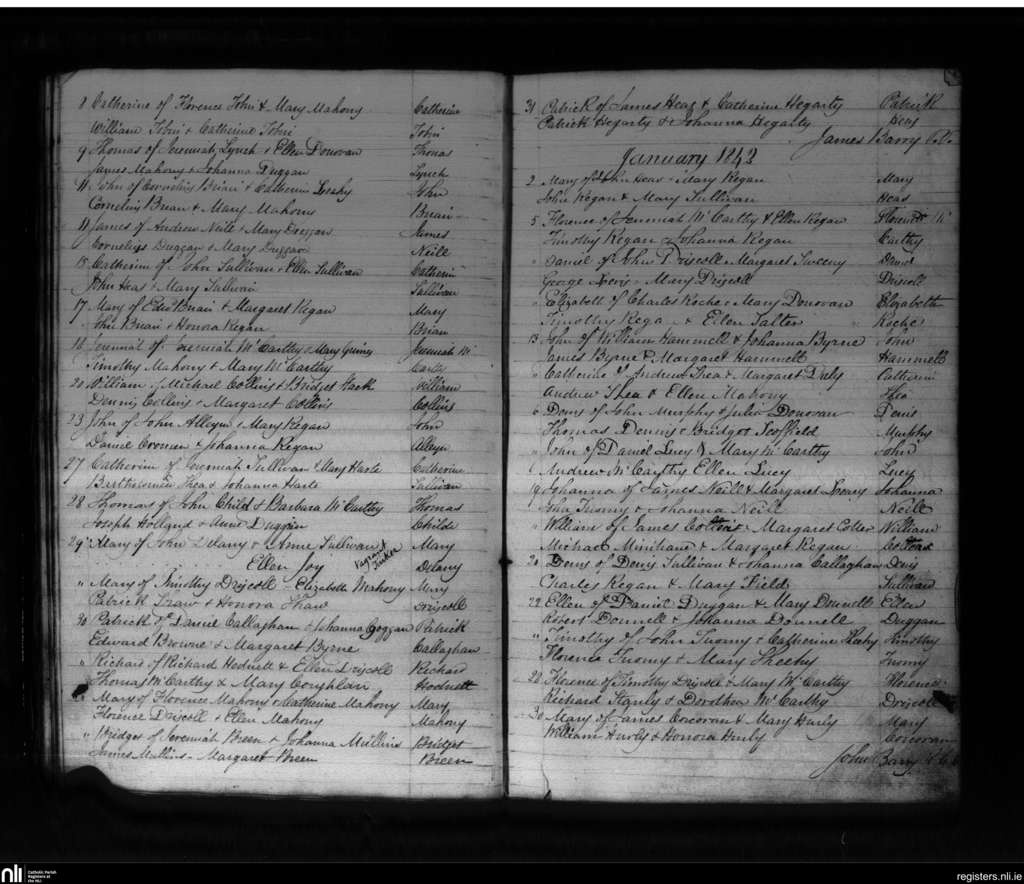 8 Catherine of Florence John & Mary Mahony Catherine
William John & Catherine John John
9 Thomas of Jeremiah Lynch & Ellen Donovan Thomas
James Mahony & Johanna Duggan Lynch
11 John of Cornelius Brian & Catherine Leahy John
Cornelius Brian & Mary Mahony Brian
11 James of Andrew Neill & Mary Duggan James
Cornelius Duggan & Mary Duggan Neill
15 Catherine of John Sullivan & Ellen Sullivan Catherine
John Heas & Mary Sullivan Sullivan
17 Mary of Edwd Brian & Margaret Regan Mary
John Brian & Honora Regan Brian
Jeremiah of Jeremiah McCarthy & Mary Jeremiah Mc
Timothy Mahony & Mary McCarthy Carthy
20 William of Michael Collins & Bridget William
Dennis Collins & Margaret Collins Collins
23 John of John Alleyn & Mary Regan John
Daniel & Johanna Regan Alleyn
27 Catherine of Jeremiah Sullivan & Mary Harte Catherine
Bartholomew Shea & Johanna Harte Sullivan
28 Thomas of John Child & Barbara McCarthy Thomas
Joseph Holland & Anne Duggan Childs
29 Mary of John Delany & Anne Sullivan Vagrant Tinker Mary
Ellen Joy Delany
" Mary of Timothy Driscoll - Elizabeth Mahony Mary
Patrick Shaw & Honora Shaw Driscoll
30 Patrick of Daniel Callaghan & Johanna Goggan Patrick
Edward Browne & Margaret Byrne Callaghan
" Richard of Richard Hodnett & Ellen Driscoll Richard
Thomas McCarthy & Mary Coughlan Hodnett
" Mary of Florence Mahony & Catherine Mahony Mary
Florence Driscoll & Ellen Mahony Mahony
" Bridget of Jeremiah Breen & Johanna Mullins Bridget
James Mullins - Margaret Breen Breen
31 Patrick of James Heas & Catherine Hegarty Patrick
Patrick Hegarty & Johanna Hegarty Heas
James Barry C.C.
January 1842
2 Mary of John Heas - Mary Regan Mary
John Regan & Mary Sullivan Heas
5 Florence of Jeremiah McCarthy & Ellen Regan Florence Mc
Timothy Regan & Johanna Regan Carthy
" Daniel of John Driscoll Margaret Sweeny Daniel
George & Mary Driscoll Driscoll
" Elizabeth of Charles Roche & Mary Donovan Elizabeth
Timothy Regan & Ellen Salter Roche
13 John of William Hammett & Johanna Byrne John
James Byrne & Margaret Hammett Hammett
" Catherine of Andrew Shea & Margaret Daly Catherine
Andrew Shea & Ellen Mahony Shea
6 Denis of John Murphy & Julia Donovan Denis
Thomas Dennis & Bridget Scoffield Murphy
" John of Daniel Lucy & Mary McCarthy John
Andrew McCarthy Ellen Lucy Lucy
19 Johanna of James Neill & Margaret Leary Johanna
John Twomy & Johanna Neill Neill
" William of James & Margaret William
Michael Minihane & Margaret Regan
20 Denis of Denis Sullivan & Johanna Callaghan Denis
Charles Regan & Mary Field Sullivan
22 Ellen of Daniel Duggan & Mary Donnell Ellen
Robert Donnell & Johanna Donnell Duggan
" Timothy of John Twomy & Catherine Timothy
Florence Twomy & Mary Sheehy Twomy
28 Florence of Timothy Driscoll & Mary McCarthy Florence
Richard & Dorothea McCarthy Driscoll
30 Mary of James Corcoran & Mary Hurly Mary
William Hurly & Honora Hurly Corcoran
John Barry C.C.
nli Catholic Parish Registers at the NLI
registers.nli.ie